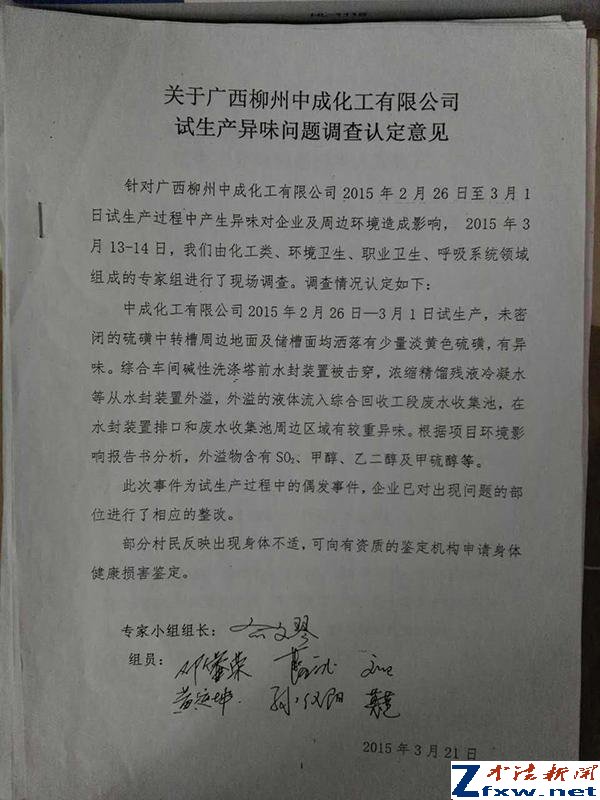 关于广西柳州中成化工有限公司
试生产异味问题调查认定意见
针对广西柳州中成化工有限公司 2015 年 2 月 26 日至 3 月 1
日试生产过程中产生异味对企业及周边环境造成影响， 2015 年 3
月 13-14 日，我们由化工类、环境卫生、职业卫生、呼吸系统领域
组成的专家组进行了现场调查。调查情况认定如下：
中成化工有限公司 2015 年 2 月 26 日—3 月 1 日试生产，未密
闭的硫磺中转槽周边地面及储槽面均洒落有少量淡黄色硫磺，有异
味。综合车间碱性洗涤塔前水封装置被击穿，浓缩精馏残液冷凝水
等从水封装置外溢，外溢的液体流入综合回收工段废水收集池，在
水封装置排口和废水收集池周边区域有较重异味。根据项目环境影
响报告书分析，外溢物含有 SO₂、甲醇、乙二醇及甲硫醇等。
此次事件为试生产过程中的偶发事件，企业已对出现问题的部
位进行了相应的整改。
部分村民反映出现身体不适，可向有资质的鉴定机构申请身体
健康损害鉴定。
专家小组组长：
组员：
2015 年 3 月 21 日
1
zfxw.net